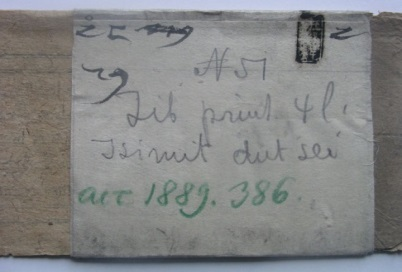 25 2
29 N 51
Tib print 4 l.
Tsimit dut sei
acc 1889. 386.